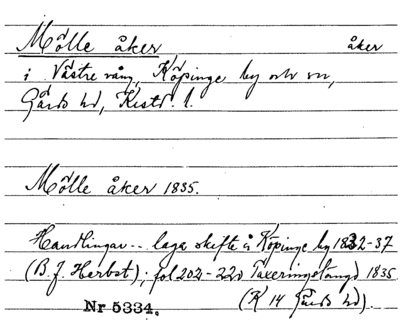 Mölle åker, åker
i Västre vång, Köpinge by och sn,
Gärds hd, Krist. l.
Mölle åker 1835.
Handlingar -- laga skifte å Köpinge by 1832-37
(B. J. Herbst); fol 202-220 Taxeringslängd 1835
(K 14 Gärds hd).
Nr 5334.